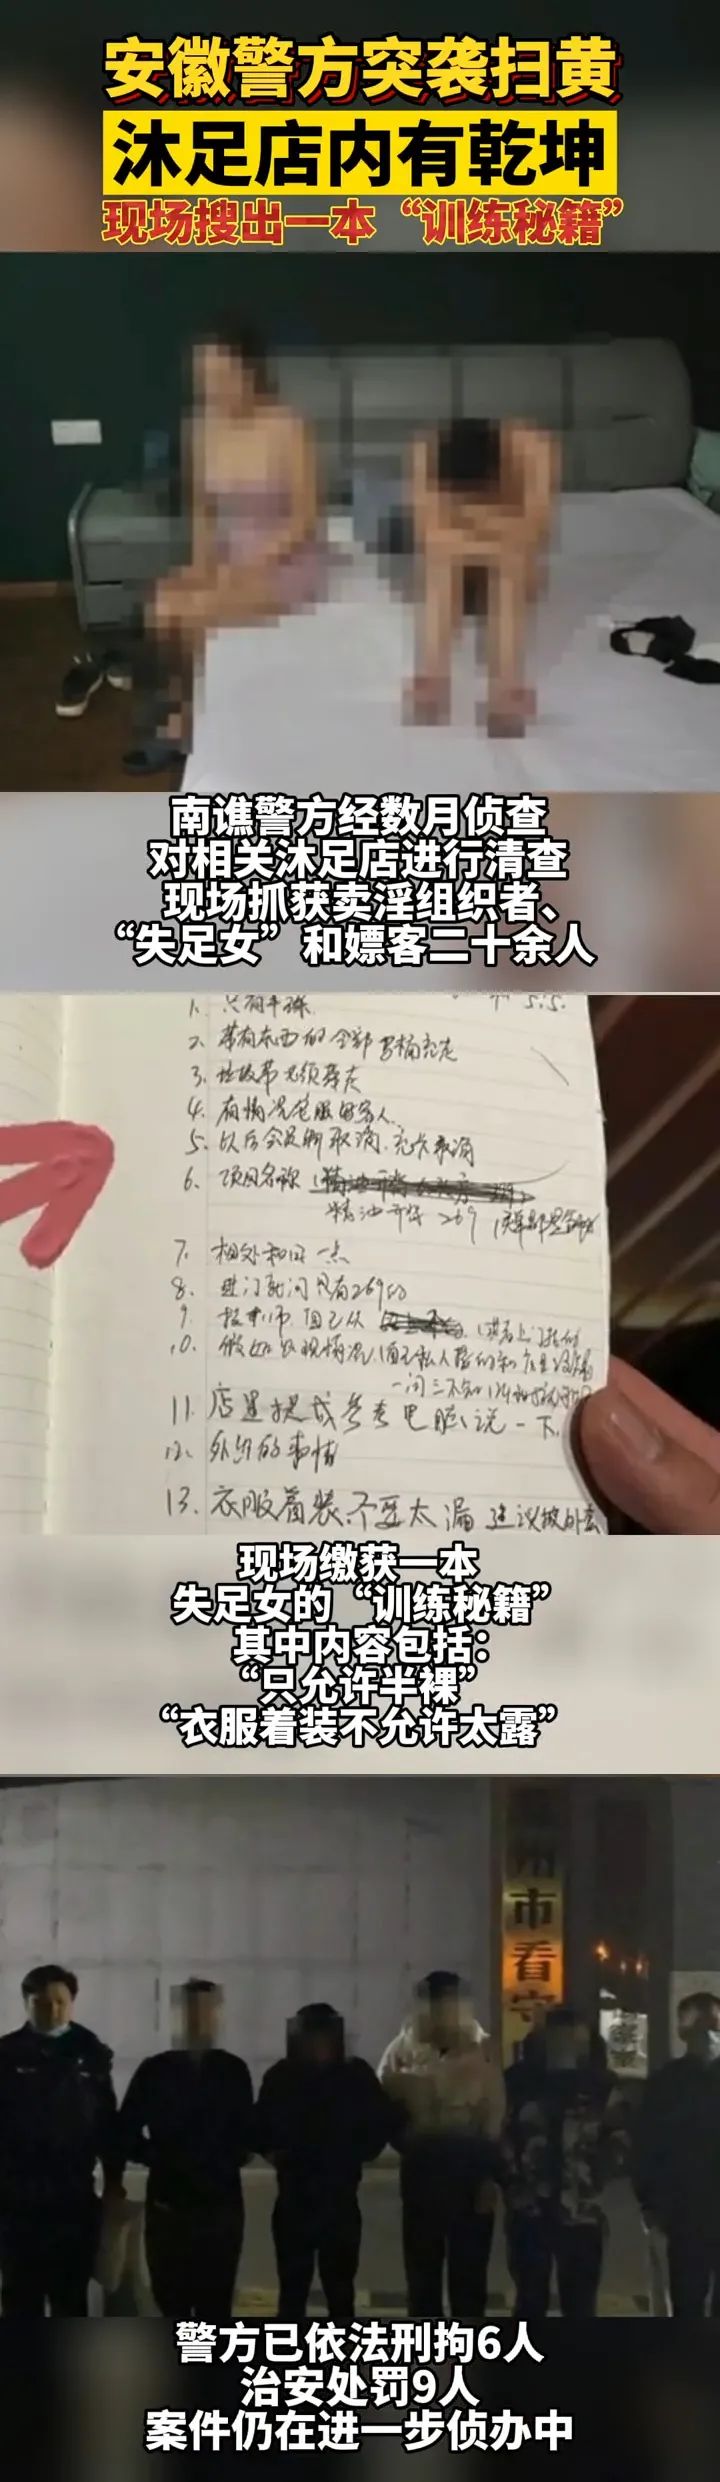 安徽警方突袭扫黄
沐足店内有乾坤
现场搜出一本“训练秘籍”
南谯警方经数月侦查
对相关沐足店进行清查
现场抓获卖淫组织者、
“失足女”和嫖客二十余人
1. 只有半裸
2. 带有东西的全部
3. 垃圾带
4. 有情况 客人
5. 以后会员 取消、充卡取消
6. 项目名称
精油开 269
7. 相处和 一点
8. 进门 只有269的
9. 技师 自己从
10. 假如 情况,
一问三不知
11. 店里提成参考电脑说一下
12. 的事情
13. 衣服着装不要太漏 建议披外套
现场缴获一本
失足女的“训练秘籍”
其中内容包括：
“只允许半裸”
“衣服着装不允许太露”
州市看守
警方已依法刑拘6人
治安处罚9人
案件仍在进一步侦办中